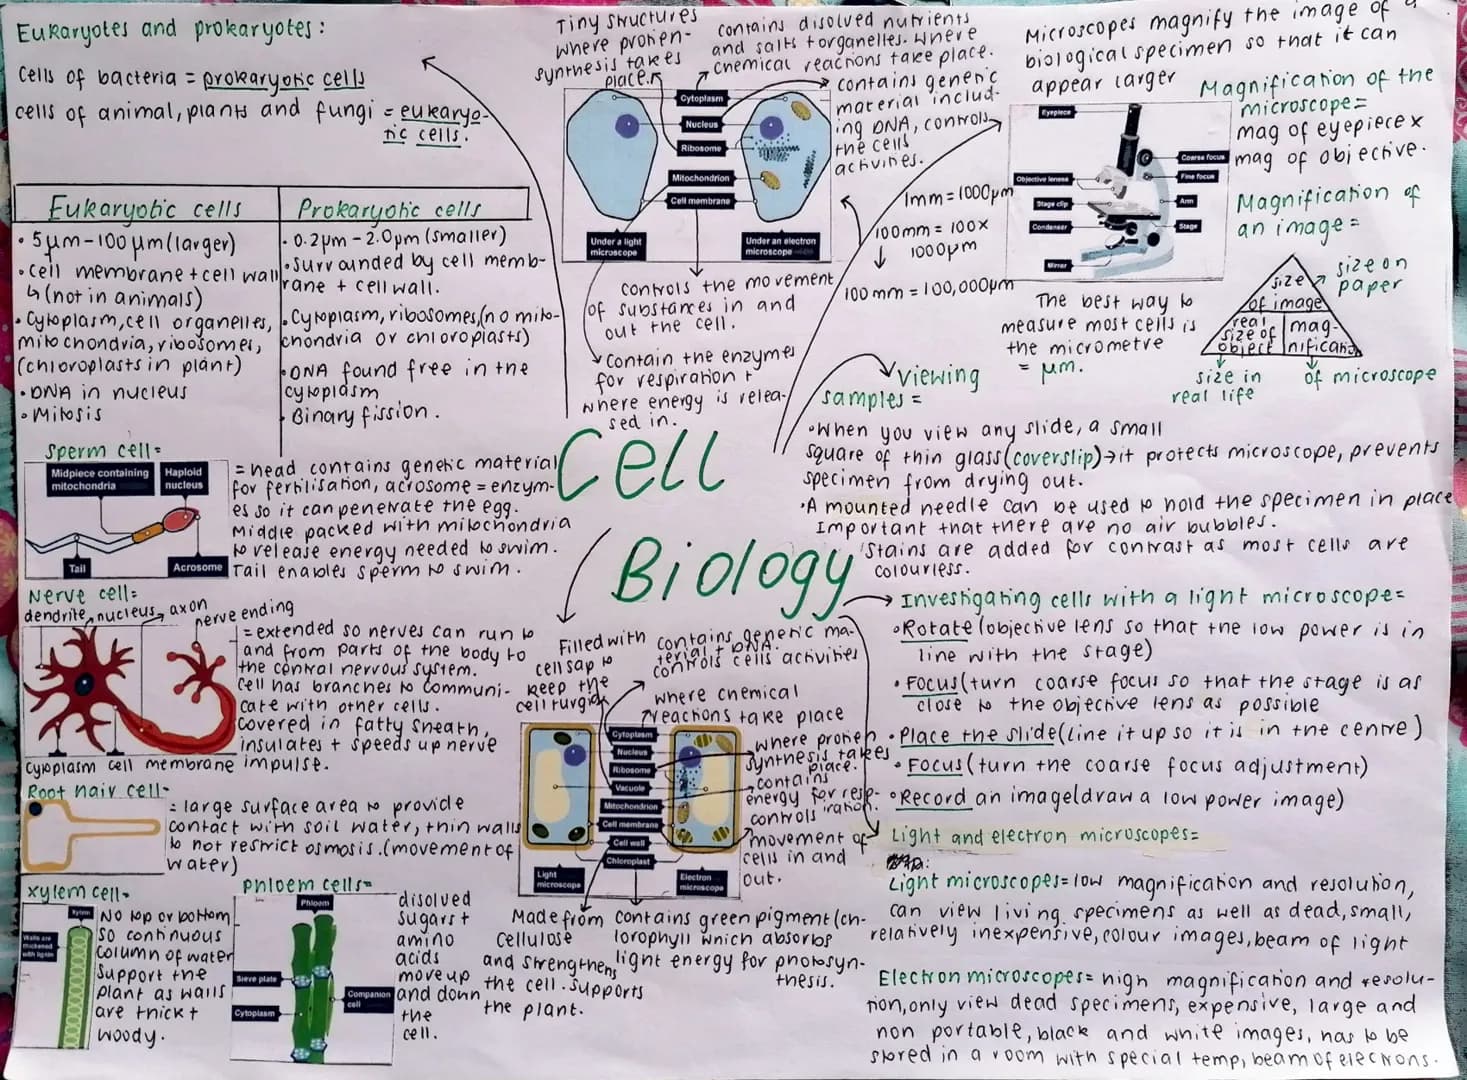 Eukaryotes and prokaryotes:
Cells of bacteria = prokaryotic cells
cells of animal, plants and fungi = eukaryo-
tic cells.
Eukaryotic cells
• 5μm-100μm(larger)
• cell membrane + cell wall
↳ (not in animals)
• Cytoplasm, cell organelles,
mitochondria, ribosomes,
(chloroplasts in plant)
• DNA in nucleus
• Mitosis
Prokaryotic cells
• 0.2μm-2.0μm(smaller)
• Surrounded by cell memb-
rane + cell wall.
• Cytoplasm, ribosomes,(no mito-
chondria or chloroplasts)
• DNA found free in the
cytoplasm
• Binary fission.
Sperm cell=
Midpiece containing
mitochondria
Haploid
nucleus
Tail
Acrosome
= head contains genetic material
for fertilisation, acrosome = enzym-
es so it can penetrate the egg.
Middle packed with mitochondria
to release energy needed to swim.
Tail enables sperm to swim.
Nerve cell=
dendrite, nucleus, axon
nerve ending
Cytoplasm cell membrane
= extended so nerves can run to
and from parts of the body to
the central nervous system.
Cell has branches to communi-
cate with other cells.
Covered in fatty sheath,
insulates + speeds up nerve
impulse.
Root hair cell-
= large surface area to provide
contact with soil water, thin walls
to not restrict osmosis.(movement of
water)
xylem cell=
Xylem
Walls are
thickened
with lignin
No top or bottom
so continuous
column of water
Support the
plant as walls
are thick +
woody.
phloem cells=
Phloem
Sieve plate
Companion
cell
Cytoplasm
disolved
sugars +
amino
acids
move up
and down
the
cell.
Tiny structures
where protien-
synthesis takes
place.
contains disolved nutrients
and salts + organelles. Where
chemical reactions take place.
contains generic
material includ-
ing DNA, controls
the cells
activities.
Cytoplasm
Nucleus
Ribosome
Mitochondrion
Cell membrane
Under a light
microscope
Under an electron
microscope
controls the movement
of substances in and
out the cell.
Contain the enzymes
for respiration +
where energy is relea-
sed in.
Cell
Biology
Filled with
cell sap to
keep the
cell turgid
contains generic ma-
terial + DNA.
controls cells activities
where chemical
reactions take place
Cytoplasm
Nucleus
Ribosome
Vacuole
Mitochondrion
Cell membrane
Cell wall
Chloroplast
Light
microscope
Electron
microscope
where protien
synthesis takes
place.
contains
energy for resp-
iration.
controls
movement of
cells in and
out.
Made from
cellulose
and strengthens
the cell. Supports
the plant.
contains green pigment (ch-
lorophyll which absorbs
light energy for photosyn-
thesis.
Microscopes magnify the image of a
biological specimen so that it can
appear larger
Eyepiece
Objective lenses
Stage clip
Condenser
Mirror
Coarse focus
Fine focus
Arm
Stage
Magnification of the
microscope=
mag of eyepiece x
mag of objective.
1mm = 1000μm
100mm = 100x
1000μm
100mm = 100,000μm
The best way to
measure most cells is
the micrometre
= μm.
Magnification of
an image=
size
of image
real
size of
object
mag-
nification
size on
paper
size in
real life
of microscope
Viewing
samples=
• When you view any slide, a small
square of thin glass(coverslip)→it protects microscope, prevents
specimen from drying out.
• A mounted needle can be used to hold the specimen in place
Important that there are no air bubbles.
Stains are added for contrast as most cells are
colourless.
Investigating cells with a light microscope=
• Rotate(objective lens so that the low power is in
line with the stage)
• Focus(turn coarse focus so that the stage is as
close to the objective lens as possible
• Place the slide(line it up so it is in the centre)
• Focus(turn the coarse focus adjustment)
• Record an image(draw a low power image)
Light and electron microscopes=
Light microscopes=low magnification and resolution,
can view living specimens as well as dead, small,
relatively inexpensive, colour images, beam of light
Electron microscopes= high magnification and resolu-
tion, only view dead specimens, expensive, large and
non portable, black and white images, has to be
stored in a room with special temp, beam of electrons.